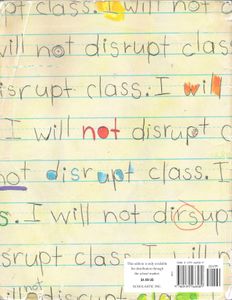 upt class. I will not d
will not disrupt class
srupt class. I will
. I will not disrup
not disrupt class.
s. I will not dirsup
This edition is only available
for distribution through
the school market.
SCHOLASTIC INC.
srupt class. I will
not
will disrupt class